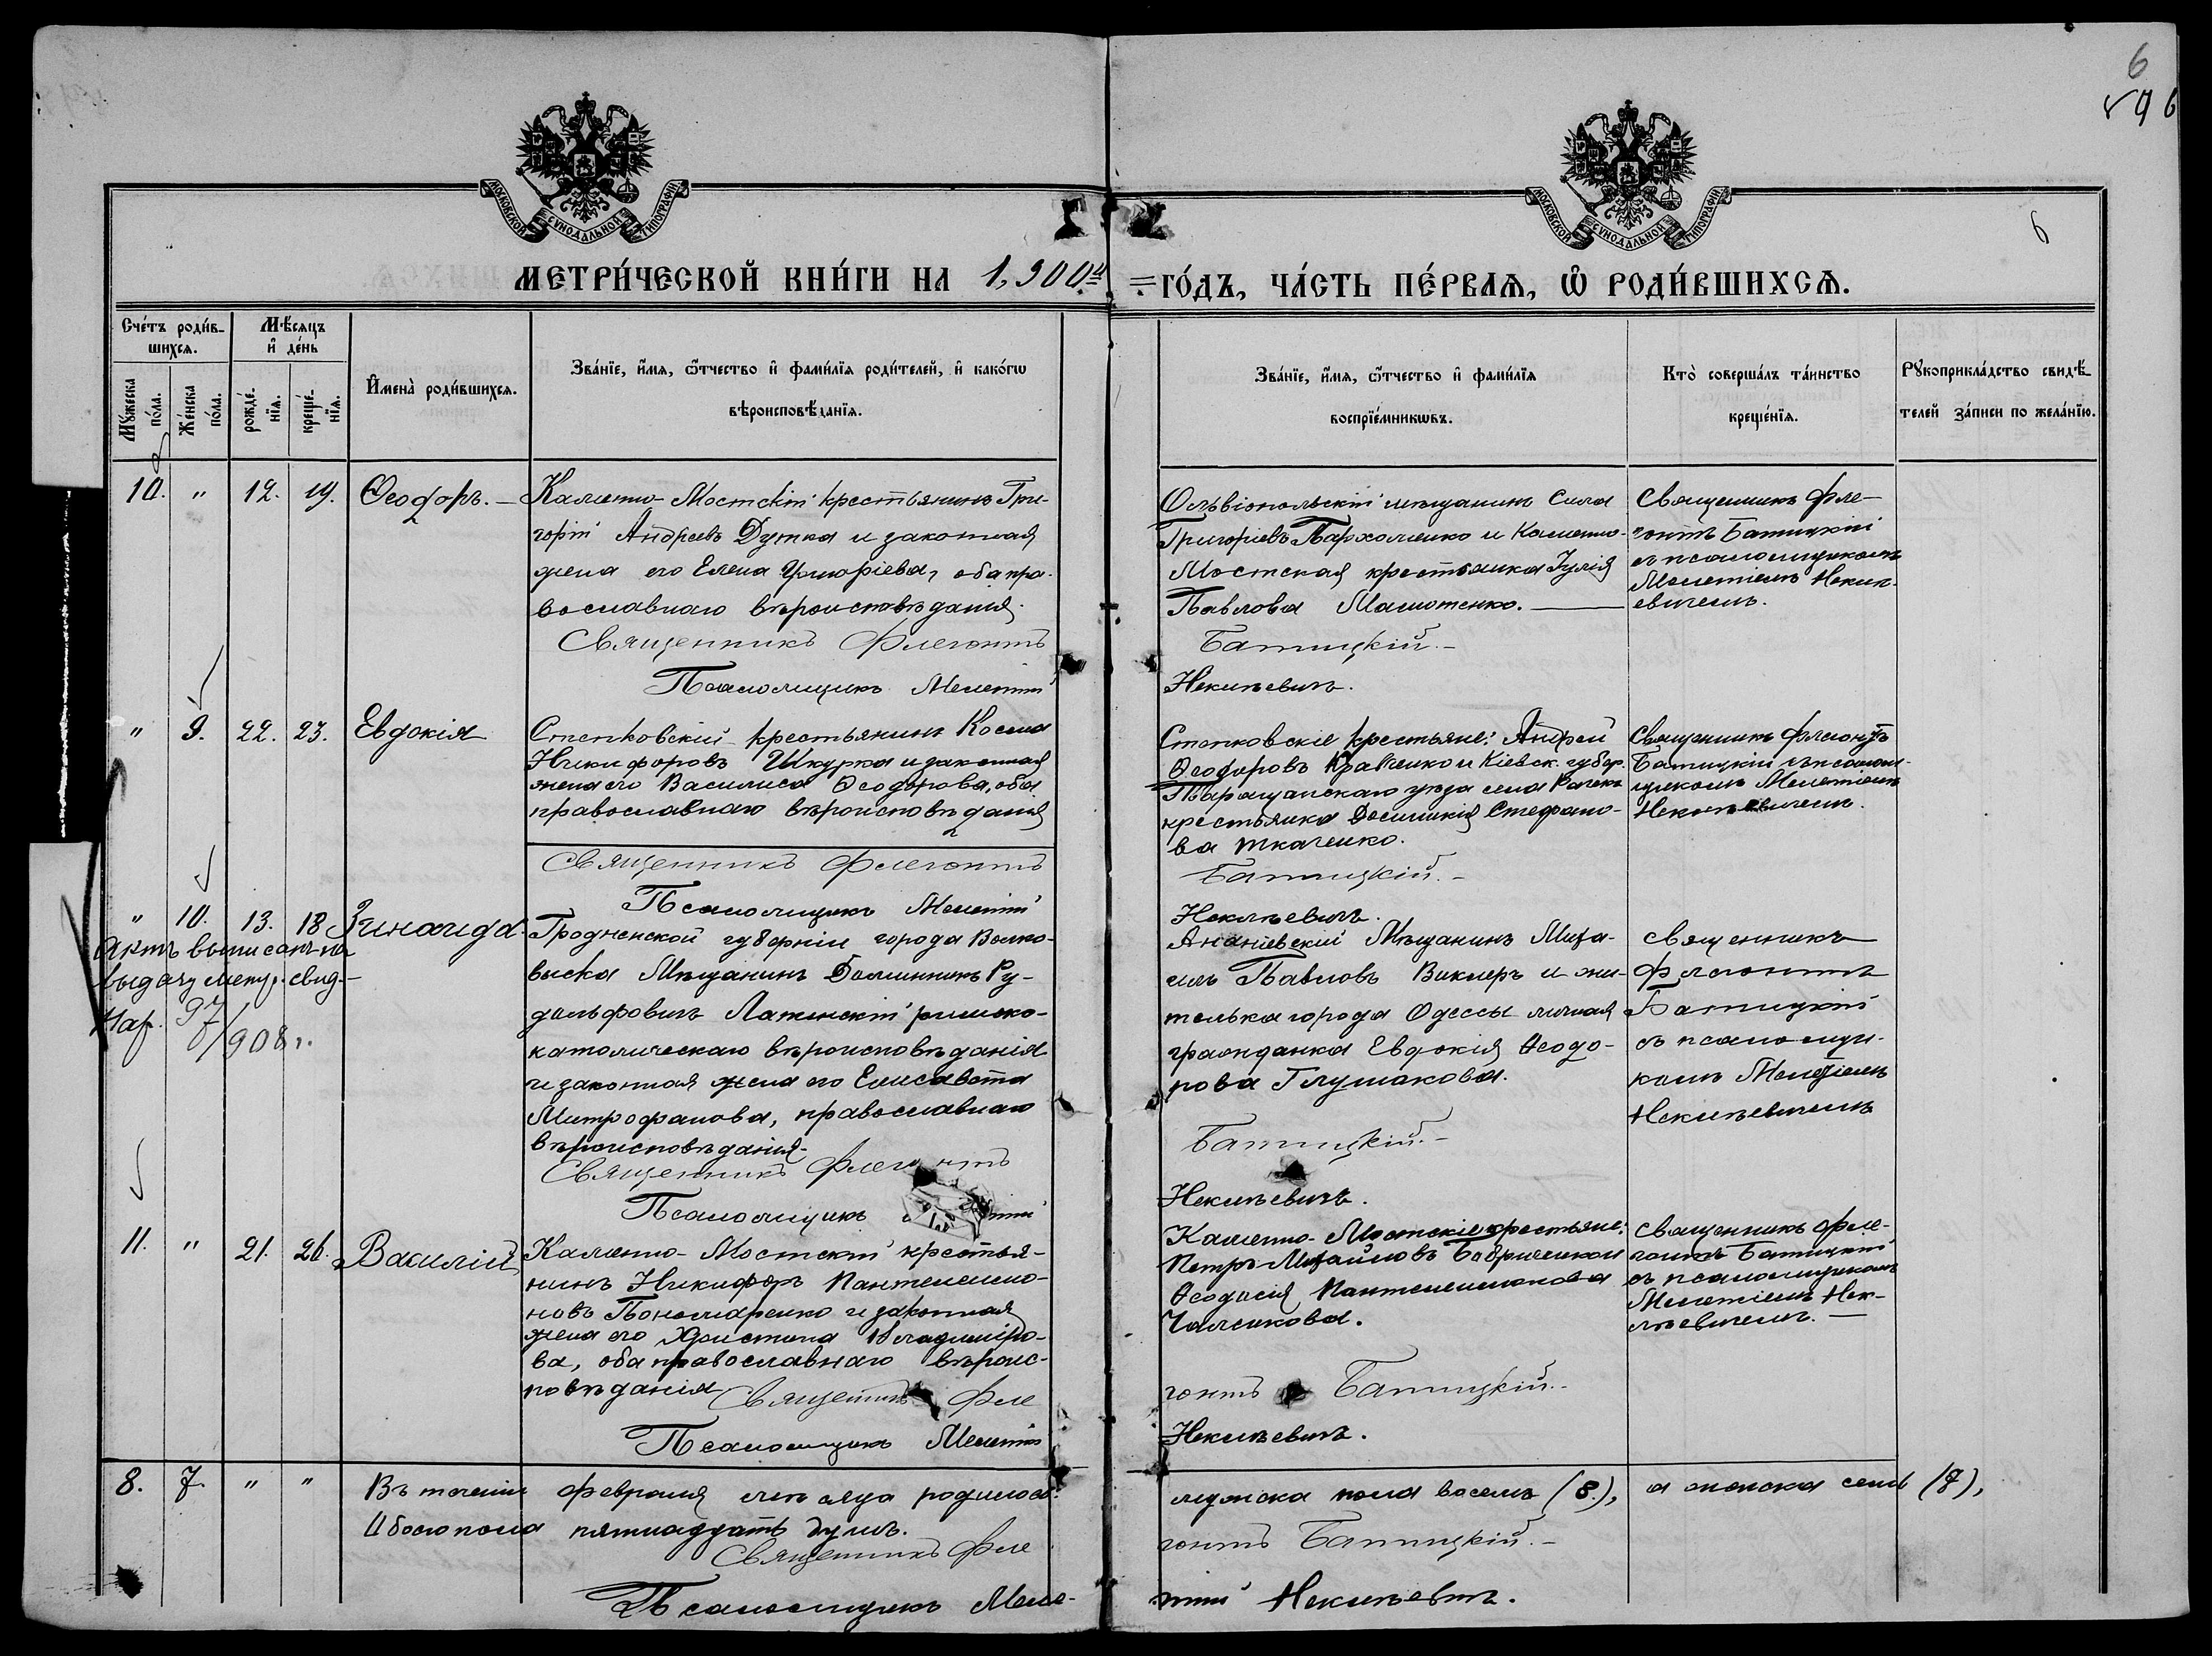 6
6
МОСКОВСКОЙ СУНОДАЛЬНОЙ ТИПОГРАФІИ
МОСКОВСКОЙ СУНОДАЛЬНОЙ ТИПОГРАФІИ
6
МЕТРИ́ЧЕСКОЙ КНИ́ГИ НА 1,900й = ГО́ДЪ, ЧА́СТЬ ПЕ́РВАѦ, Ѽ РОДИ́ВШИХСѦ.
Сче́тъ роди́в-
шихсѧ.
Мѣ́сяцъ
и҆ де́нь
Мꙋжеска по́ла.
Же́нска по́ла.
рожде́нїѧ.
креще́нїѧ.
И҆мена̀ роди́вшихсѧ.
Зва́нїе, и҆́мѧ, ѻ҆́тчество и҆ фами́лїѧ роди́телей, и҆ како́гѡ
вѣроисповѣ́данїѧ.
Зва́нїе, и҆́мѧ, ѻ҆́тчество и҆ фами́лїѧ
воспрїе́мникѡвъ.
Кто̀ соверша́лъ та́инство
креще́нїѧ.
Рꙋкоприкла́дство свидѣ́-
телей за́писи по жела́нїю.
10. " 12. 19. Ѳеодоръ. —
Каменно-Мостскій крестьянинъ Гри-
горій Андреевъ Дутка и законная
жена его Елена Григоріева, оба пра-
вославнаго вѣроисповѣданія.
Священникъ Флегонтъ
Псаломщикъ Мелетій
Ольвіопольскій мѣщанинъ Сила
Григоріевъ Пархоменко и Каменно-
Мостская крестьянка Іулія
Павлова
Батицкій.-
Некилевичъ.
Священникъ Фле-
гонтъ Батицкій
съ псаломщикомъ
Мелетіемъ Некил-
евичемъ.
" 9. 22. 23. Евдокія
Степковскій крестьянинъ Косма
Никифоровъ Шкурка и законная
жена его Василиса Ѳеодорова, оба
православнаго вѣроисповѣданія
Священникъ Флегонтъ
Псаломщикъ Мелетій
Степковскіе крестьяне: Андрей
Ѳеодоровъ Кравченко и Кіевск. губер.
Таращанскаго уѣзда села
крестьянка Стефано-
ва Ткаченко.
Батицкій.-
Некилевичъ.
Священникъ Флегонтъ
Батицкій съ псалом-
щикомъ Мелетіемъ
Некилевичемъ.
" 10. 13. 18 Зинаида
Актъ выписанъ на
выдачу метр. свид-
Нар. 97/908 г.
Гродненской губерніи города Волко-
выска Мѣщанинъ Доминикъ Ру-
дольфовичъ Латинскій римско-
католическаго вѣроисповѣданія
и законная жена его Елисавета
Митрофанова, православнаго
вѣроисповѣданія-
Священникъ Флегонтъ
Псаломщикъ
Ананіевскій Мѣщанинъ Миха-
илъ Павловъ Викперъ и жи-
телька города Одессы личная
гражданка Евдокія Ѳеодо-
рова Глушакова.
Батицкій.-
Некилевичъ.
Священникъ
Флегонтъ
Батицкій
съ псаломщи-
комъ Мелетіемъ
Некилевичемъ
11. " 21. 26. Василій
Каменно-Мостскій крестья-
нинъ Никифоръ Пантелеимо-
новъ Пономаренко и законная
жена его Христина Владиміро-
ва, оба православнаго вѣроис-
повѣданія
Священникъ Фле
Псаломщикъ Мелетій
Каменно-Мостскіе крестьяне:
Петръ Михайловъ
Ѳеодосія Пантелеимонова
Батицкій.-
гонтъ
Некилевичъ.
Священникъ Фле-
гонтъ Батицкій
съ псаломщикомъ
Мелетіемъ Нек-
илевичемъ. —
8. 7. " "
Въ теченіи февраля мѣсяца родилось: мужска пола восемь (8.), а женска семь (7),
Обоего пола пятнадцать душъ.
Священникъ Флегонтъ Батицкій.-
Псаломщикъ Мелетій Некилевичъ.